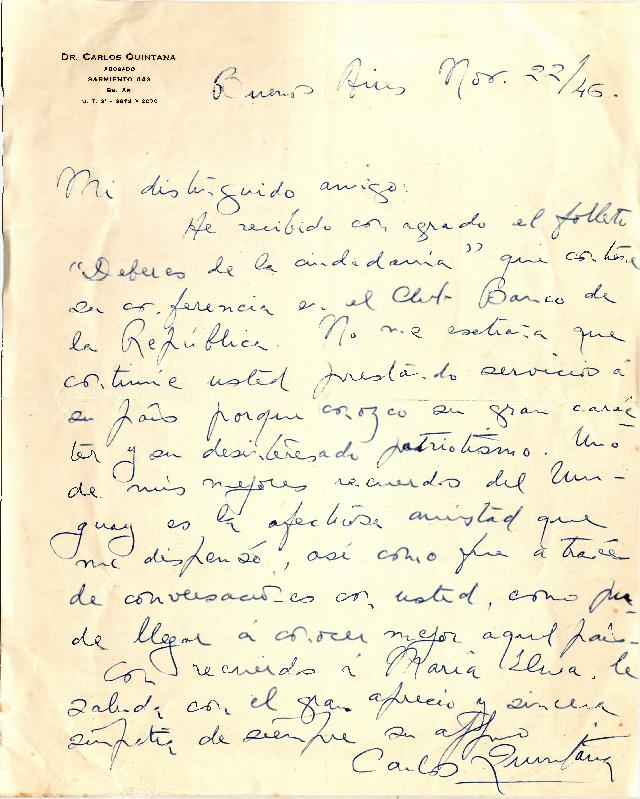 DR. CARLOS QUINTANA
ABOGADO
SARMIENTO 643
BS. AS
Buenos Aires Nov. 22/46.
Mi distinguido amigo:
He recibido con agrado el folleto
"Deberes de la ciudadanía" que contiene
su conferencia en el Club Banco de
la República. No me extraña que
continúe usted prestando servicios á
su país porque conozco su gran carác
ter y su desinteresado patriotismo. Uno
de mis mejores recuerdos del Uru-
guay es la afectuosa amistad que
me dispensó, así como fue a través
de conversaciones con usted, como pu-
de llegar á conocer mejor aquel país.
Con recuerdos á María Elena, le
saluda con el gran aprecio y sincera
simpatía de siempre su affmo
Carlos Quintana